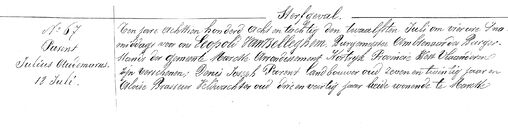 Sterfgeval.
N° 67
Parent
Julius Augustinus.
12 Juli.
Ten jare achttien honderd acht en tachtig den twaalfsten Juli om vier ure na
middags voor ons Leopold Van Belleghem, Burgemeester Ambtenaar des Burger-
stands der gemeente Marcke Arrondissement Kortryk Provincie West Vlaanderen
zyn verschenen, Denis Joseph Parent landbouwer oud zeven en twintig jaar en
Brasseur Veldwachter oud drie en veertig jaar beide wonende te Marcke